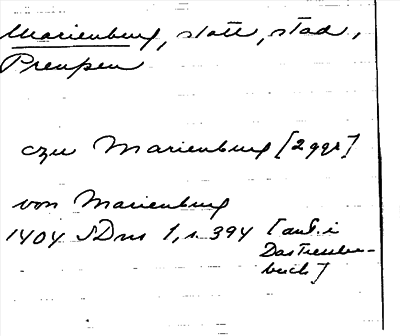 Marienburg, statt, stad,
Preußen
czu Marienburg [2ggr]
von Marienburg
1404 SDM 1, s. 394 [aus: i
Das Tressler-
buch]